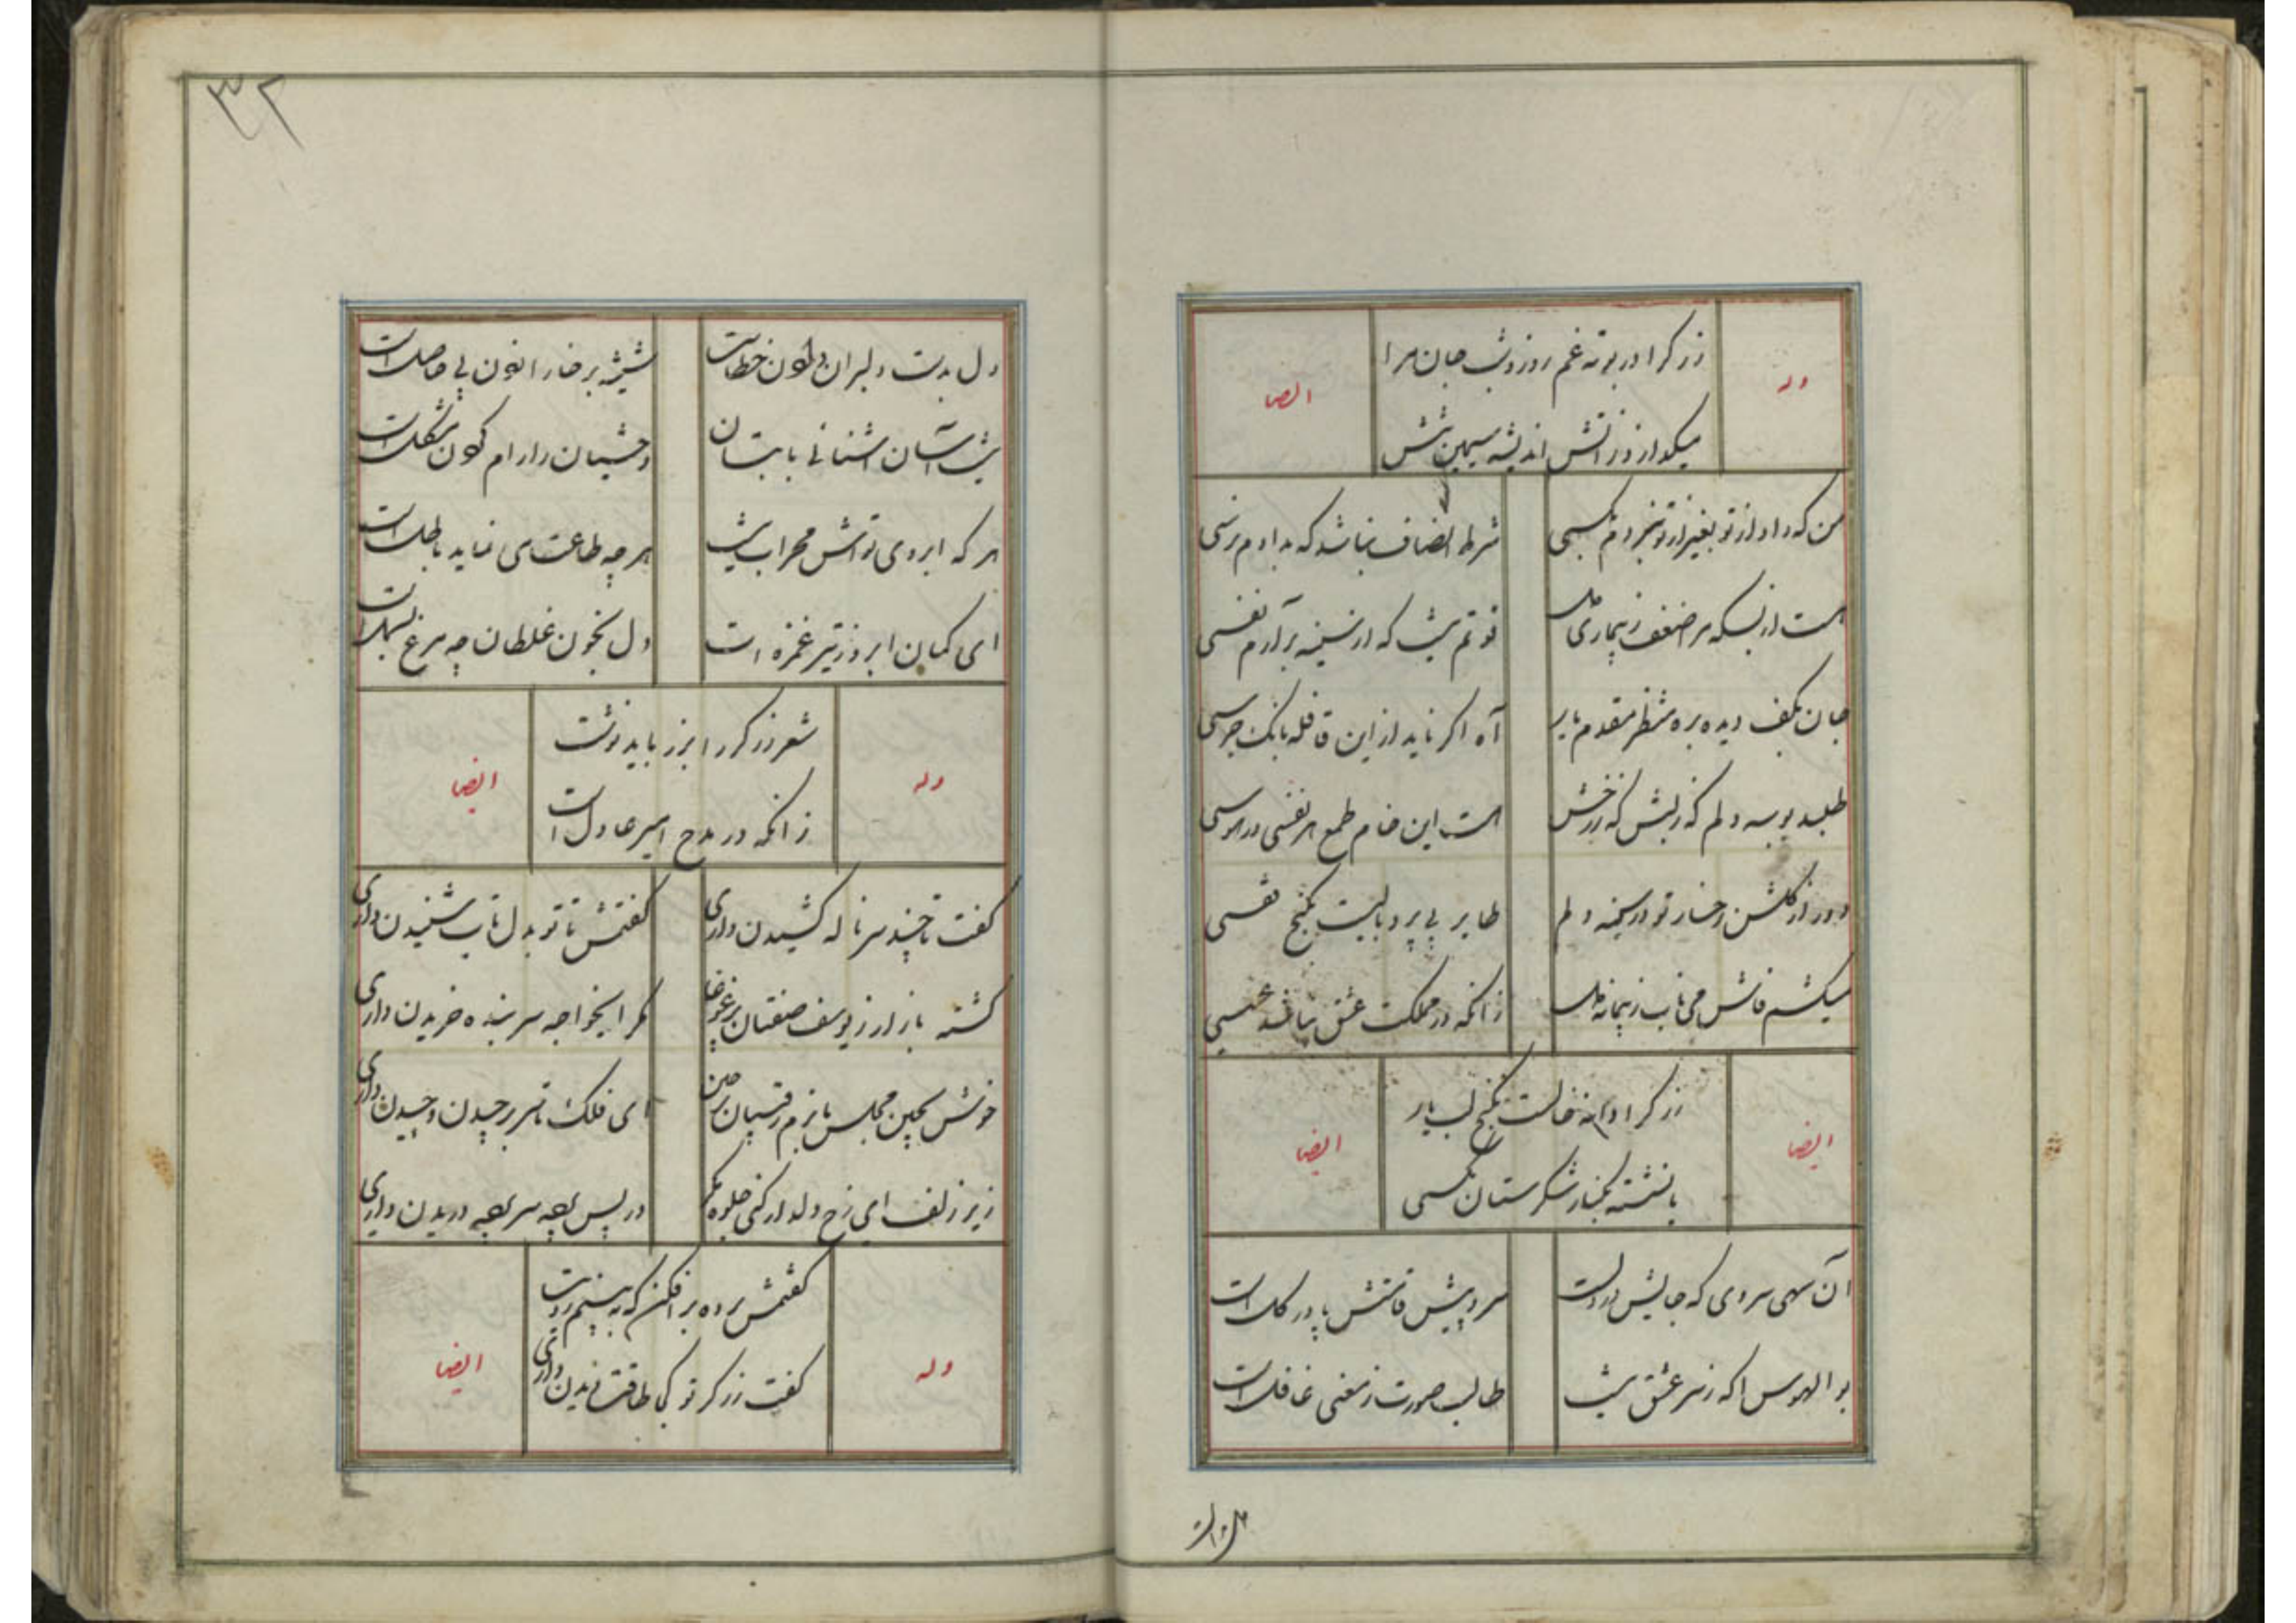 زرگرا در بوته غم روز و شب جان مرا
وله
ایضا
میگدازد ز آتش اندیشه سیمین تنش
من که داد از تو بغیر از تو نبردم بکسی شرط انصاف نباشد که بدادم نرسی
هست از بسکه مرا ضعف ز بیماری دل قوتم نیست که از سینه برآرم نفسی
جان بکف دیده بره منتظر مقدم یار آه اگر ناید از این قافله بانک جرسی
طلبد بوسه دلم که ز لبش که ز رخش هست این خام طمع هر نفسی در هوسی
دور از گلشن رخسار تو در سینه دلم طایر بی پر و بالیست بکنج قفسی
میکشم فاش می ناب ز پیمانه دل زانکه در مملکت عشق نباشد عسسی
زرگرا دانه خالست بکنج لب یار
ایضا
ایضا
یا نشسته بکنار شکرستان مکسی
آن سهی سروی که جایش در دلست سرو پیش قامتش پا در گل است
بوالهوس آگه ز سر عشق نیست طالب صورت ز معنی غافل است
دل بدست
۳۲
دل بدست دلبران دادن خطاست شیشه بر خارا زدن بی حاصل است
نیست آسان آشنائی با بتان وحشیان را رام کردن مشکل است
هر که ابروی تواش محراب نیست هر چه طاعت می نماید باطل است
ای کمان ابرو ز تیر غمزه ات دل بخون غلطان چه مرغ بسمل است
شعر زرگر را بزر باید نوشت
وله
ایضا
زانکه در مدح امیر عادل است
گفت تا چند سر ناله کشیدن داری گفتمش تا تو بدل تاب شنیدن داری
گشته بازار ز یوسف صفتان پر غوغا مگر ایخواجه سر بنده خریدن داری
خوش بچین مجلس ما بزم رقیبان برچین ای فلک تا سر برچیدن و چیدن داری
زیر زلف ای رخ دلدار کنی جلوه مگر در پس پرده سر پرده دریدن داری
گفتمش پرده برافکن که ببینم رویت
وله
ایضا
گفت زرگر تو کی طاقت دیدن داری